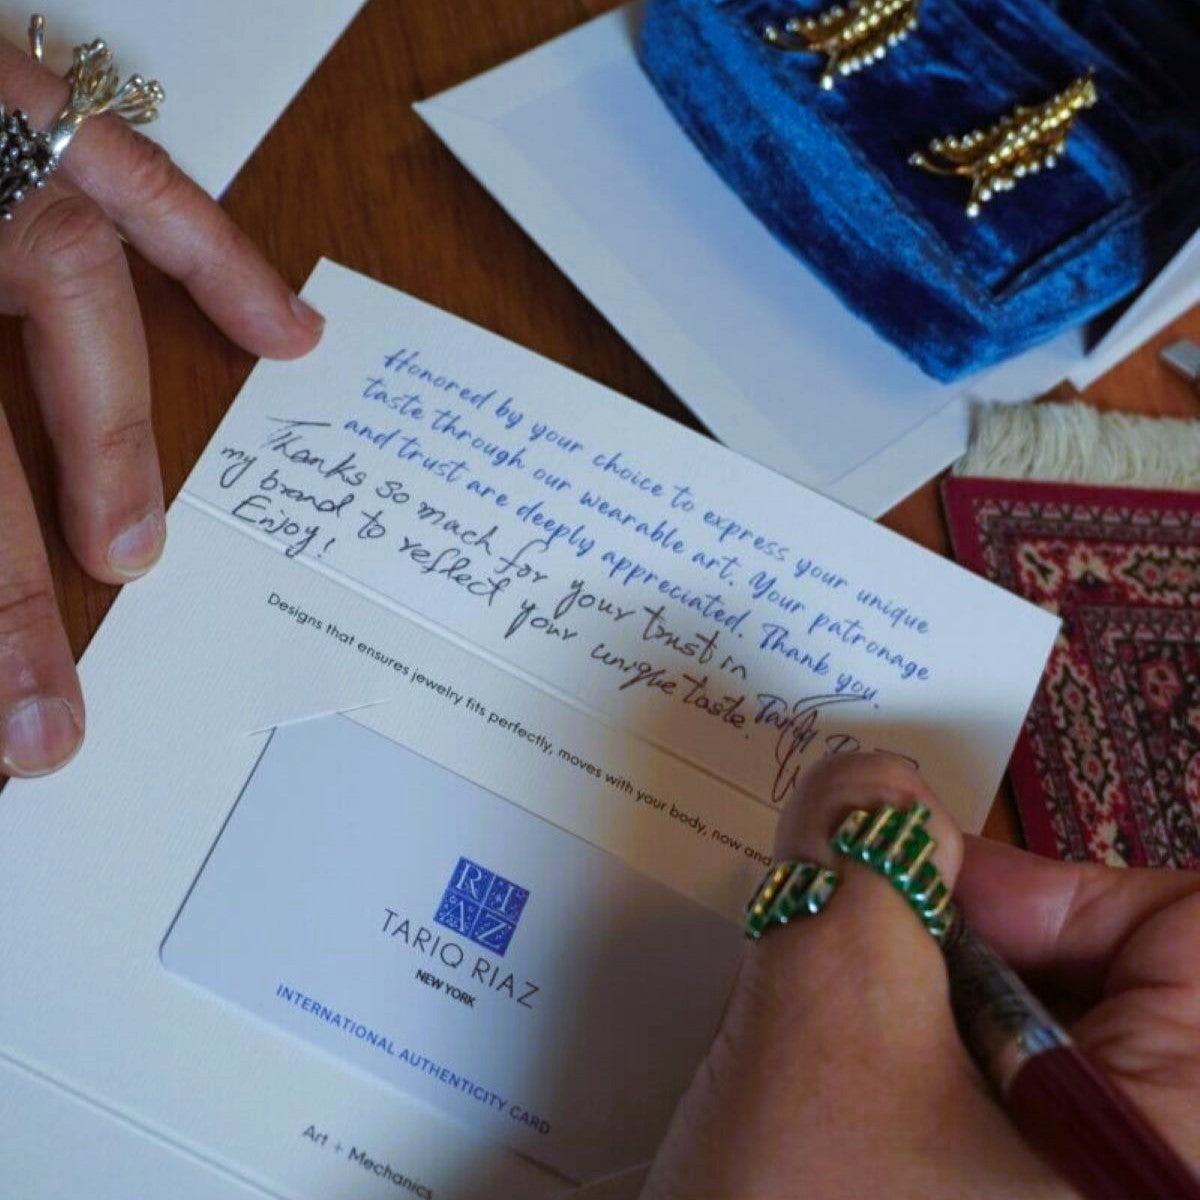 Honored by your choice to express your unique
taste through our wearable art. Your patronage
and trust are deeply appreciated. Thank you.
Thanks so much for your trust in
my brand to reflect your unique taste.
Enjoy!
Designs that ensures jewelry fits perfectly, moves with your body, now and
RIAZ
TARIQ RIAZ
NEW YORK
INTERNATIONAL AUTHENTICITY CARD
Art + Mechanics